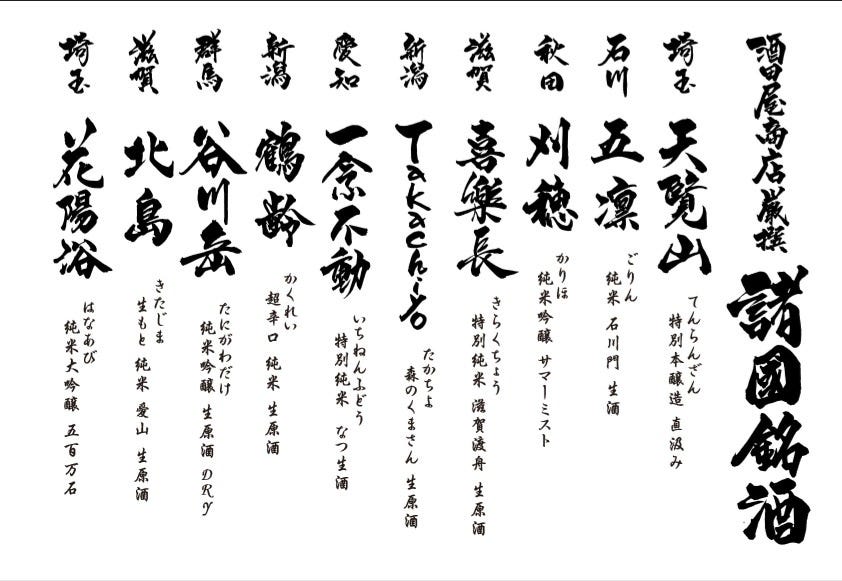 酒田屋商店厳撰
諸國銘酒
埼玉
天覧山
てんらんざん
特別本醸造 直汲み
石川
五凛
ごりん
純米 石川門 生酒
秋田
刈穂
かりほ
純米吟醸 サマーミスト
滋賀
喜楽長
きらくちょう
特別純米 滋賀渡舟 生原酒
新潟
Takachiyo
たかちよ
森のくまさん 生原酒
愛知
一念不動
いちねんふどう
特別純米 なつ生酒
新潟
鶴齢
かくれい
超辛口 純米 生原酒
群馬
谷川岳
たにがわだけ
純米吟醸 生原酒 DRY
滋賀
北島
きたじま
生もと 純米 愛山 生原酒
埼玉
花陽浴
はなあび
純米大吟醸 五百万石